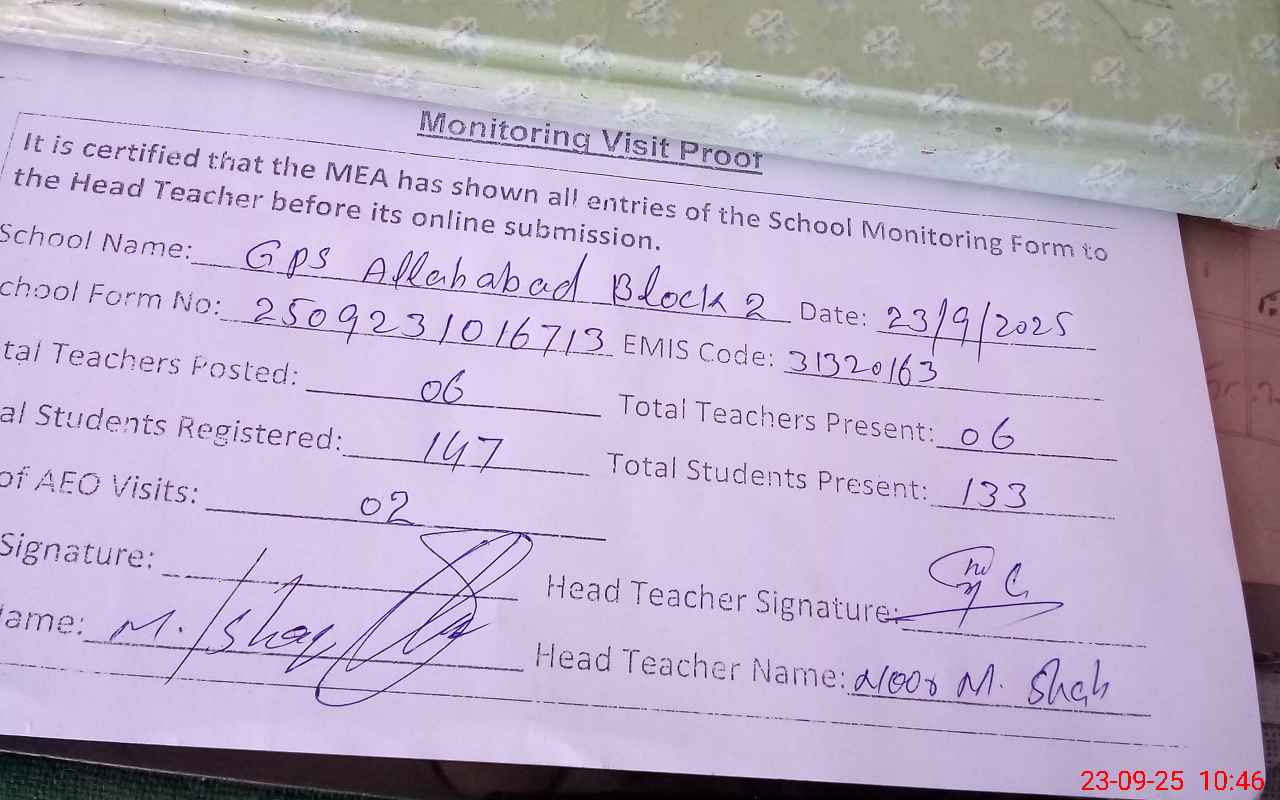 Monitoring Visit Proof
It is certified that the MEA has shown all entries of the School Monitoring Form to
the Head Teacher before its online submission.
School Name: GPS Allahabad Block 2 Date: 23/9/2025
chool Form No: 2509231016713 EMIS Code: 31320163
tal Teachers Posted: 06 Total Teachers Present: 06
al Students Registered: 147 Total Students Present: 133
of AEO Visits: 02
Signature: Head Teacher Signature:
ame: M. Ishaq Head Teacher Name: Noor M. Shah
23-09-25 10:46